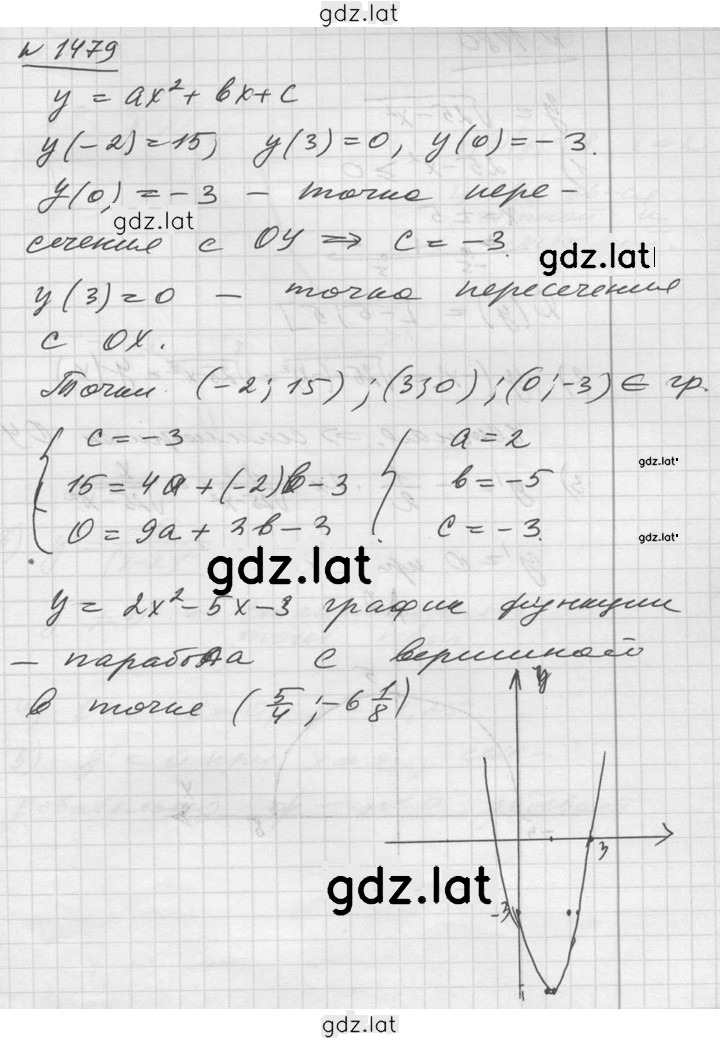 gdz.lat
№ 1479
y = ax² + bx + c
y(-2) = 15, y(3) = 0, y(0) = -3.
y(0) = -3 — точка пере-
gdz.lat
сечения с OY ⇒ c = -3.
gdz.lat
y(3) = 0 — точка пересечения
с OX.
Точки (-2; 15); (3; 0); (0; -3) ∈ гр.
c = -3 a = 2
gdz.lat
15 = 4a + (-2)b - 3 b = -5
0 = 9a + 3b - 3 c = -3.
gdz.lat
gdz.lat
y = 2x² - 5x - 3 график функции
— парабола с вершиной
в точке (5/4; -6 1/8)
y
3
gdz.lat
-3
gdz.lat